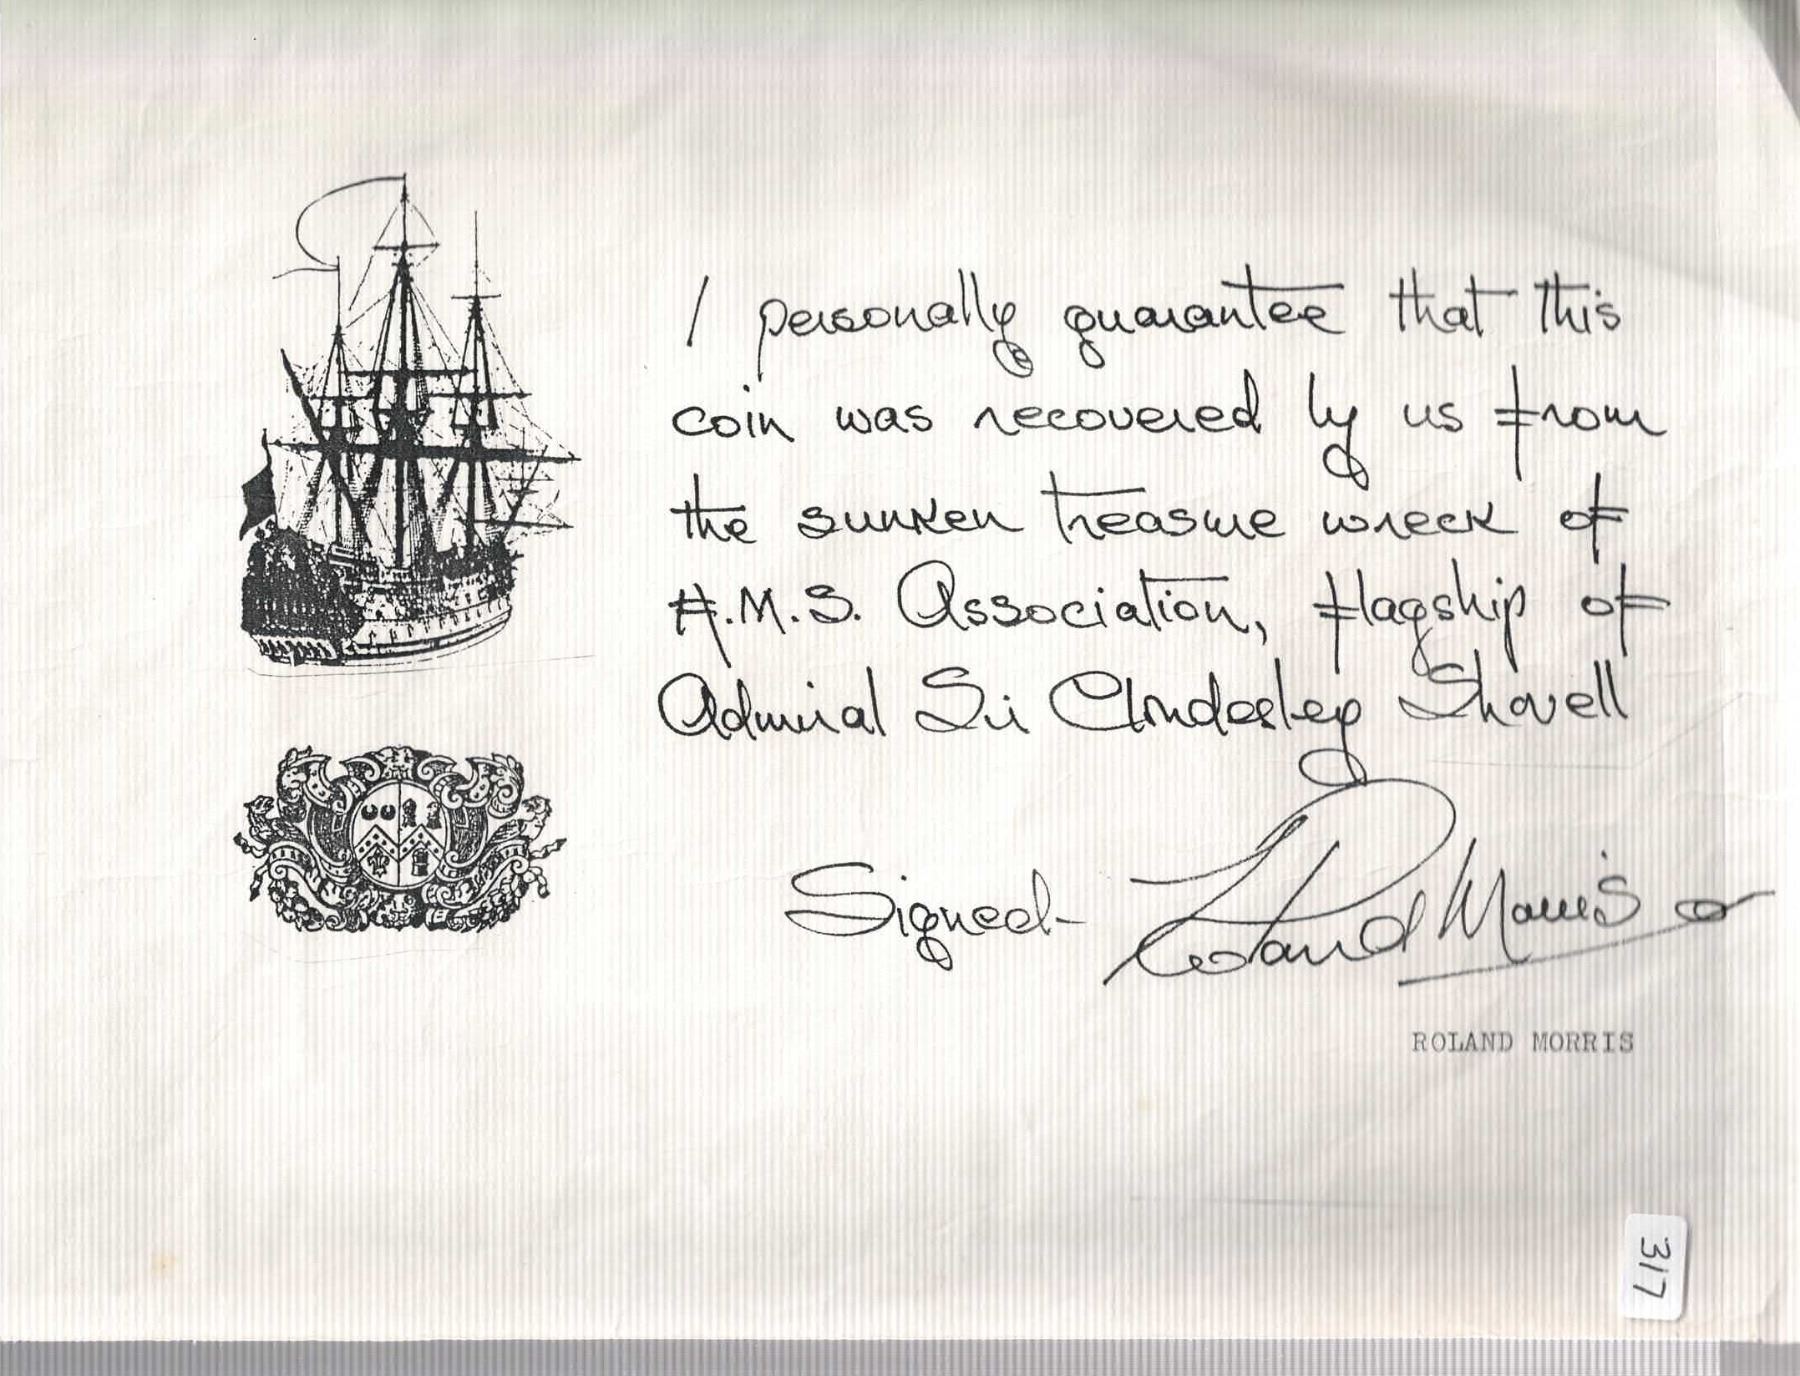 I personally guarantee that this
coin was recovered by us from
the sunken treasure wreck of
H.M.S. Association, flagship of
Admiral Sir Clowdesley Shovell
Signed- Roland Morris
ROLAND MORRIS
317